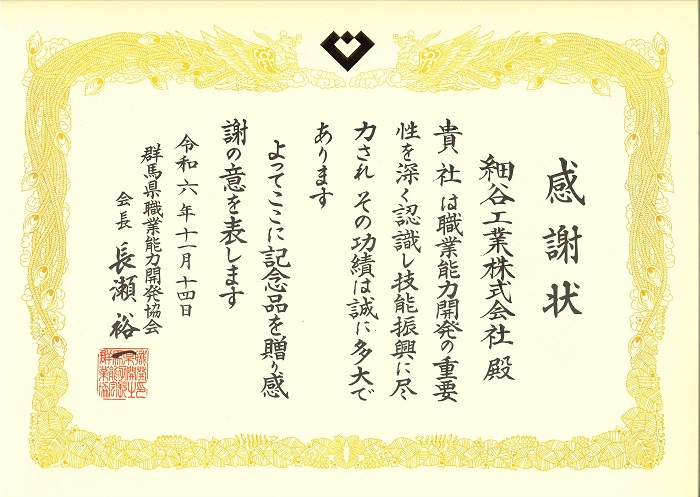 感謝状
細谷工業株式会社 殿
貴社は職業能力開発の重要
性を深く認識し技能振興に尽
力され その功績は誠に多大で
あります
よってここに記念品を贈り感
謝の意を表します
令和六年十一月十四日
群馬県職業能力開発協会
会長 長瀬裕一